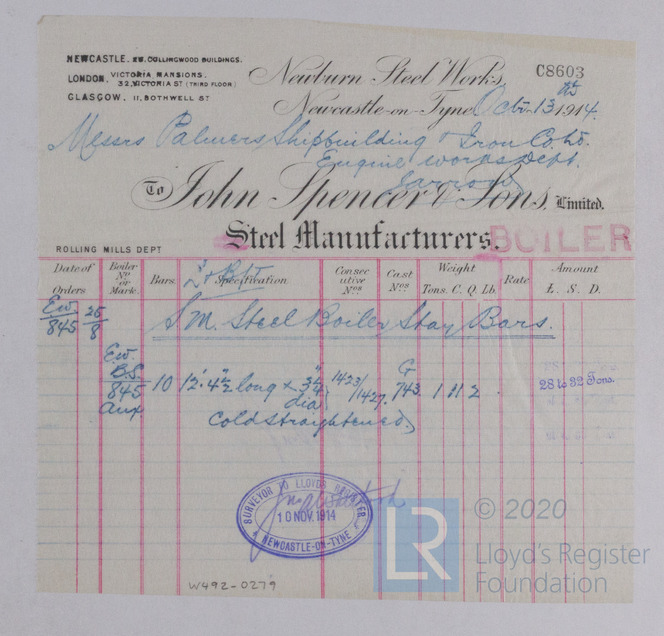 NEWCASTLE. 25, COLLINGWOOD BUILDINGS.
LONDON, VICTORIA MANSIONS. 32, VICTORIA ST (THIRD FLOOR)
GLASGOW, 11, BOTHWELL ST
C8603
Newburn Steel Works,
Newcastle-on-Tyne, Octbr 13th 1914.
Messrs Palmers Shipbuilding & Iron Co. Ld.
Engine Works Dept.
Jarrow
To John Spencer & Sons, Limited.
Steel Manufacturers.
BOILER
ROLLING MILLS DEPT
Date of Orders
Boiler No or Mark.
Bars.
Specification
Consecutive Nos
Cast Nos
Weight
Tons. C. Q. Lb.
Rate
Amount
L. S. D.
Ew. 845 25/8
S. M. Steel Boiler Stay Bars.
Ew. B.S. 845 Aux.
10 12'. 4½" long x 3¼" dia
1423/1427.
G 743
28 to 32 Tons.
Cold straightened.
SURVEYOR TO LLOYD'S REGISTER
10 NOV. 1914
NEWCASTLE-ON-TYNE
W492-0279
LR
© 2020
Lloyd's Register
Foundation